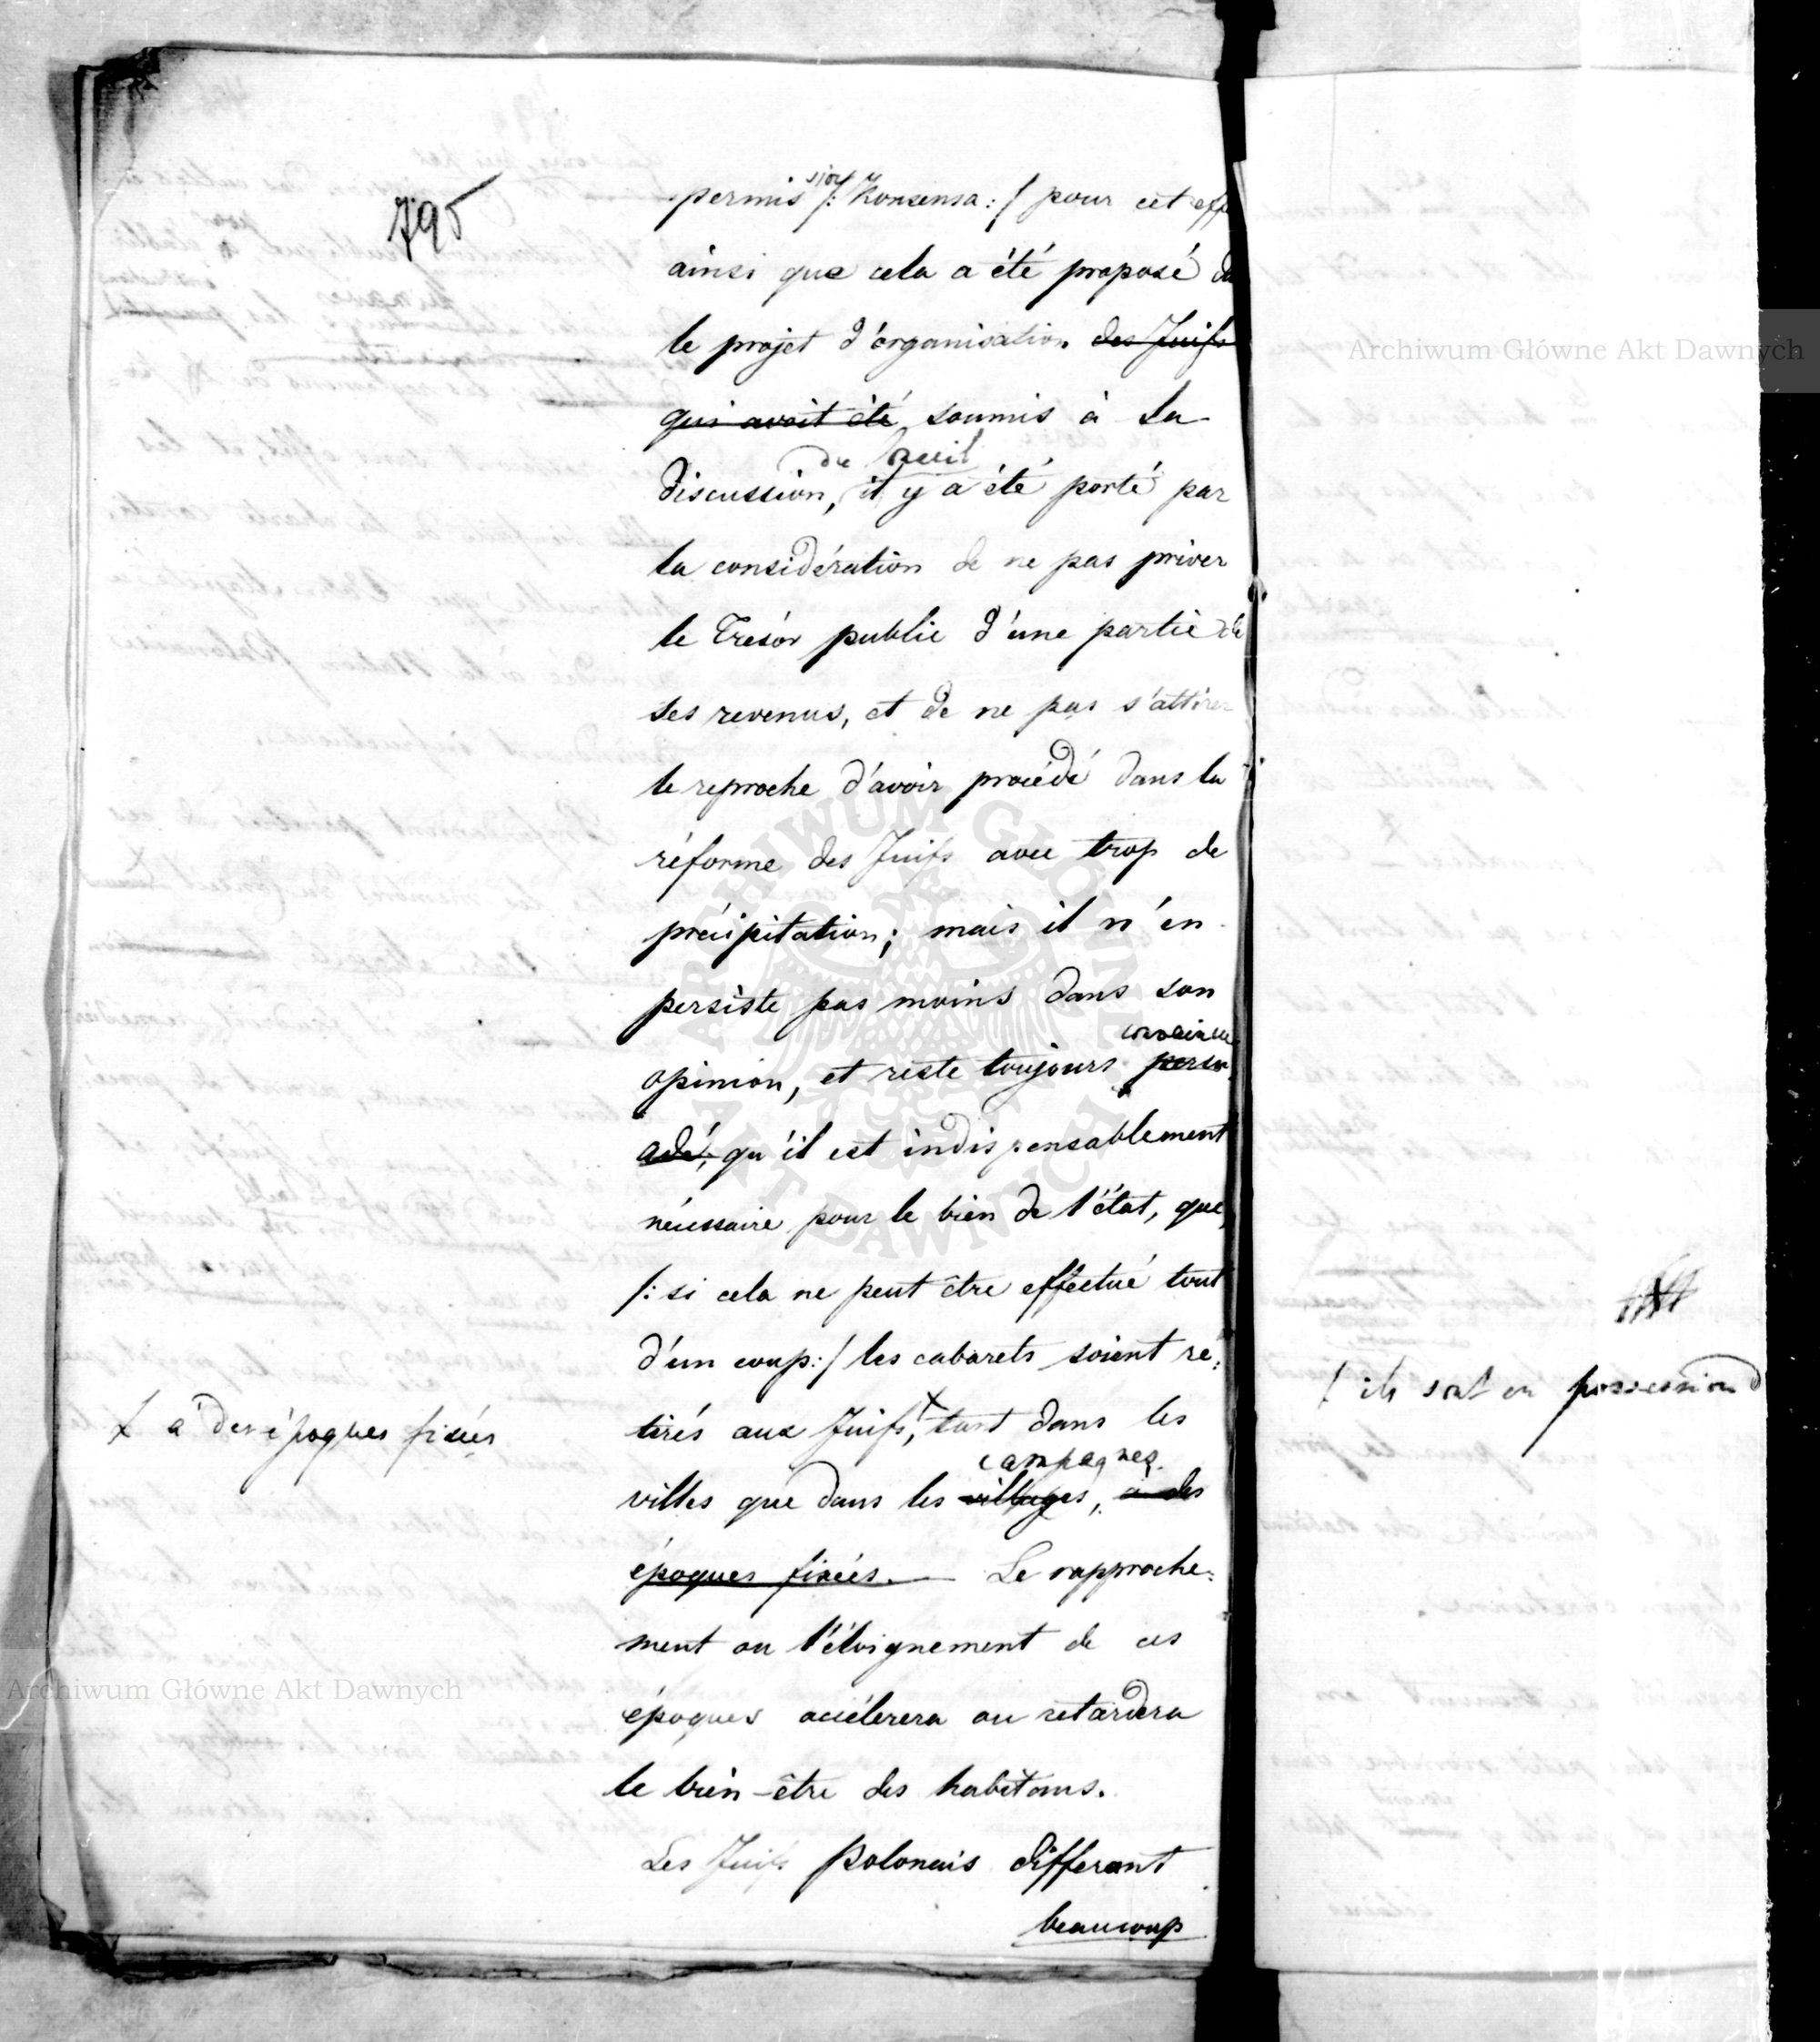 795
permission /: Konsensa :/ pour cet
ainsi que cela a été proposé
le projet d'organisation des Juifs
qui avoit été soumis à la
du
discussion, il y a été porté par
la considération de ne pas priver
le Trésor public d'une partie de
ses revenus, et de ne pas s'attirer
le reproche d'avoir procédé dans la
réforme des Juifs avec trop de
précipitation; mais il n'en
persiste pas moins dans son
convaincu
opinion, et reste toujours persu
adé, qu'il est indispensablement
nécessaire pour le bien de l'état, que,
/: si cela ne peut être effectué tout
d'un coup :/ les cabarets soient re=
tirés aux Juifs, X tant dans les
X à des époques fixées
campagnes
villes que dans les villages, à des
époques fixées. — Le rapproche=
ment ou l'éloignement de ces
époques accélerera ou retardera
le bien-être des habitans.
Les Juifs Polonais differant
beaucoup
ils sont en possession
Archiwum Główne Akt Dawnych
Archiwum Główne Akt Dawnych
ARCHIWUM GŁÓWNE AKT DAWNYCH